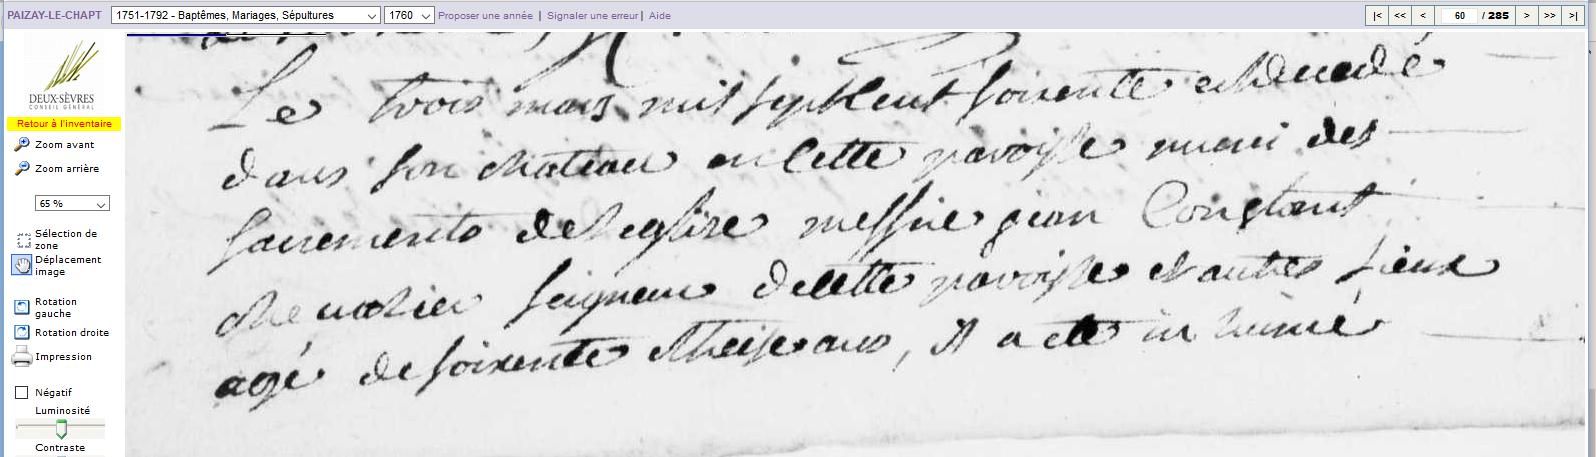 PAIZAY-LE-CHAPT 1751-1792 - Baptêmes, Mariages, Sépultures 1760 Proposer une année | Signaler une erreur | Aide |< << < 60 / 285 > >> >|
DEUX-SÈVRES
CONSEIL GÉNÉRAL
Retour à l'inventaire
Zoom avant
Zoom arrière
65 %
Sélection de
zone
Déplacement
image
Rotation
gauche
Rotation droite
Impression
Négatif
Luminosité
Contraste
Le trois mars mil sept cent soixente est decedé
dans son chateau en cette paroisse muni des
sacrements de l'eglise messire jean Constant
chevalier seigneur de cette paroisse et autres lieux
agé de soixente et treise ans, il a eté inhumé